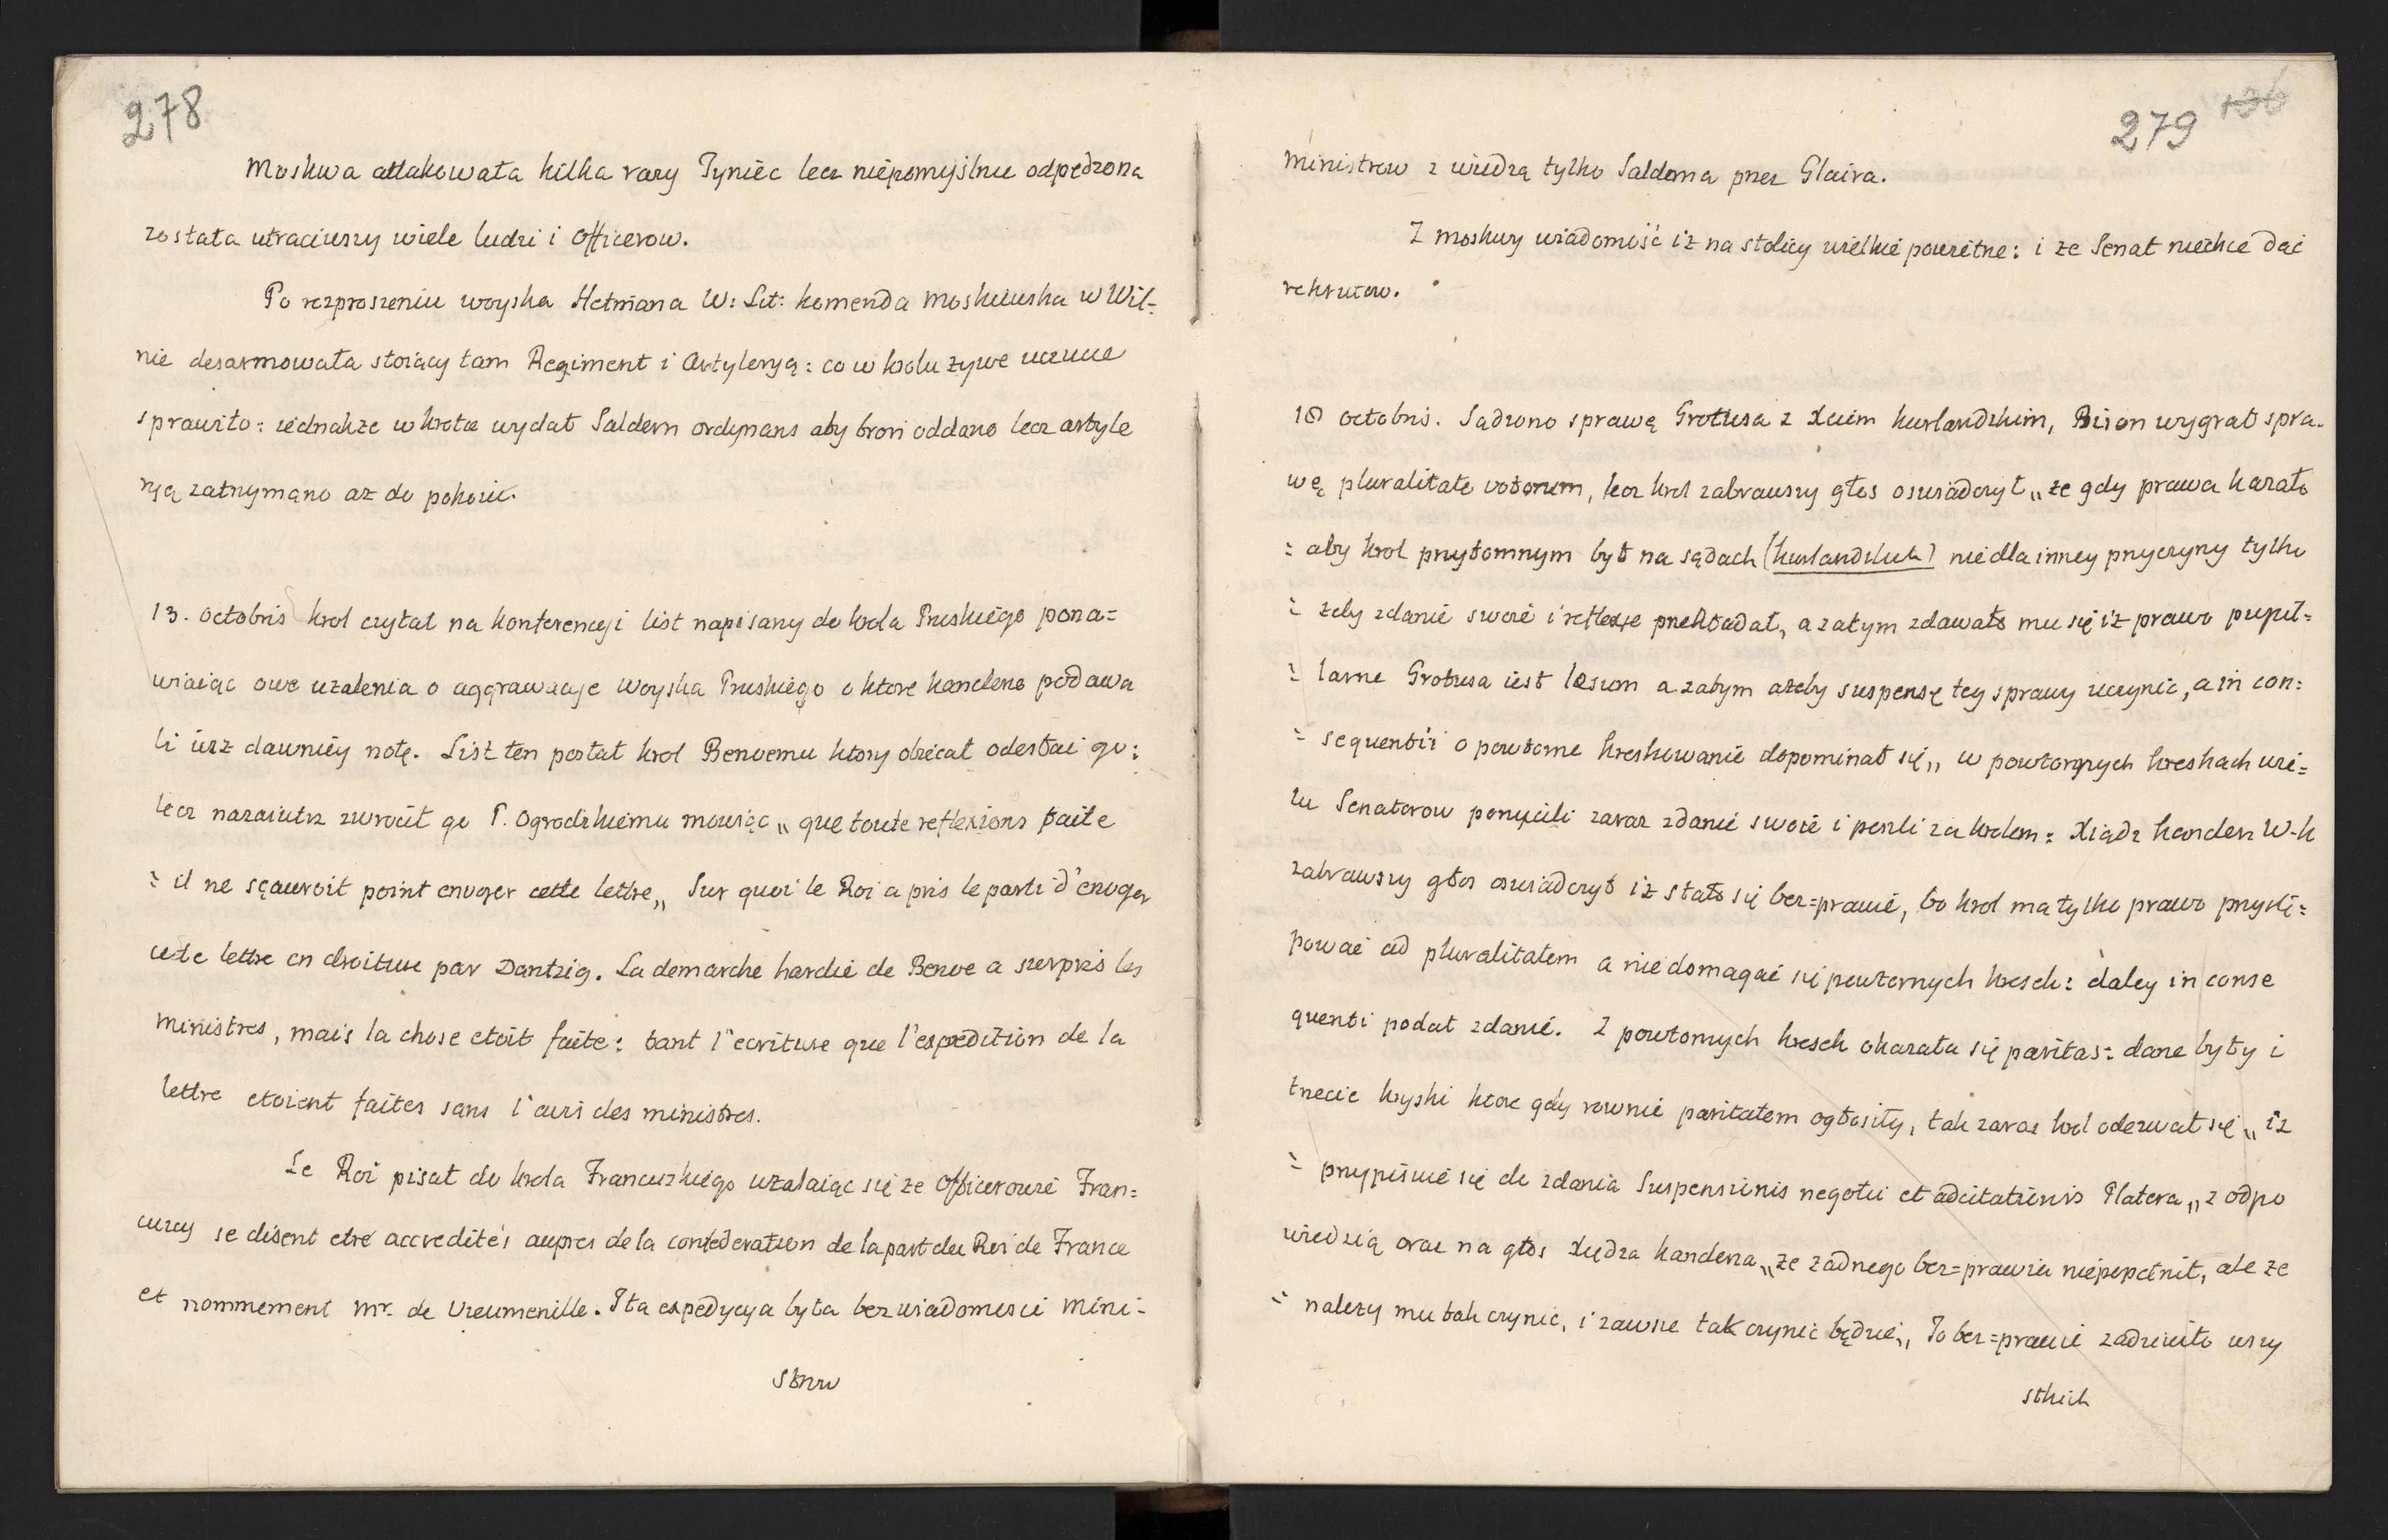 278
Moskwa attakowała kilka razy Tyniec lecz niepomyślnie odpędzona
została utraciwszy wiele ludzi i Officerow.
Po rozproszeniu woyska Hetmana W: Lit: komenda moskiewska w Wil=
nie desarmowała stoiący tam Regiment i Artyleryą: co w krolu zywe uczucie
sprawiło: iednakze w krotce wydał Saldern ordynans aby broń oddano lecz artyle
ryą zatrzymano az do pokoiu.
13. octobris krol czytał na konferencyi list napisany do krola Pruskiego pona=
wiaiąc owe uzalenia o aggrawacye woyska Pruskiego o ktore kanclerze podawa
li iusz dawniey notę. List ten posłał krol Benoemu ktory obiecał odesłać go:
lecz nazaiutrz zwrocił go P. Ogrodzkiemu mowiąc „ que toute reflexions faite
= il ne sçauroit point envoyer cette lettre „ Sur quoi le Roi a pris le parti d'envoyer
cette lettre en droiture par Dantzig. La demarche hardie de Benoe a surpris les
ministres, mais la chose etoit faite: tant l'ecriture que l'expedition de la
lettre etoient faites sans l'avis des ministres.
Le Roi pisał do krola Francuzkiego uzalaiąc się ze Officerowie Fran=
cuzcy se disent etre accredités aupres de la confederation de la part du Roi de France
et nommement mr. de Vieumenille. I ta expedycya była bez wiadomości mini=
strow
279 136
ministrow z wiedzą tylko Salderna przez Glaira.
Z moskwy wiadomość iz na stolicy wielkie powietrze: i ze Senat niechce dać
rekrutow.
10 octobris. Sądzono sprawę Grotusa z Xciem kurlandzkim, Biron wygrał spra=
wę pluralitate votorum, lecz krol zabrawszy głos oswiadczył „ ze gdy prawa kazało
= aby krol przytomnym był na sądach (kurlandzkich) nie dla inney przyczyny tylko
= zeby zdanie swoie i reflexye przekładał, a zatym zdawało mu się iz prawo pupil=
= larne Grotusa iest læsum a zatym azeby suspensę tey sprawy uczynić, a in con=
= sequentii o powtorne kreskowanie dopominał się „ w powtornych kreskach wie=
lu Senatorow porzucili zaraz zdanie swoie i poszli za krolem: Xiądz kanclerz W-k
zabrawszy głos oswiadczył iz stało się bez=prawie, bo krol ma tylko prawo przystę=
pować ad pluralitatem a nie domagać się powtornych kresek: daley in conse
quenti podał zdanie. Z powtornych kresek okazała się paritas: dane były i
trzecie kryski ktore gdy rownie paritatem ogłosiły, tak zaraz krol odezwał się „ iz
= przypisuie się do zdania Suspensionis negotii et adcitationis Platera „ z odpo
wiedzią oraz na głos Xiędza kanclerza „ ze zadnego bez=prawia niepopełnił, ale ze
= nalezy mu tak czynić, i zawsze tak czynić będzie „ To bez=prawie zadziwiło wszy
stkich